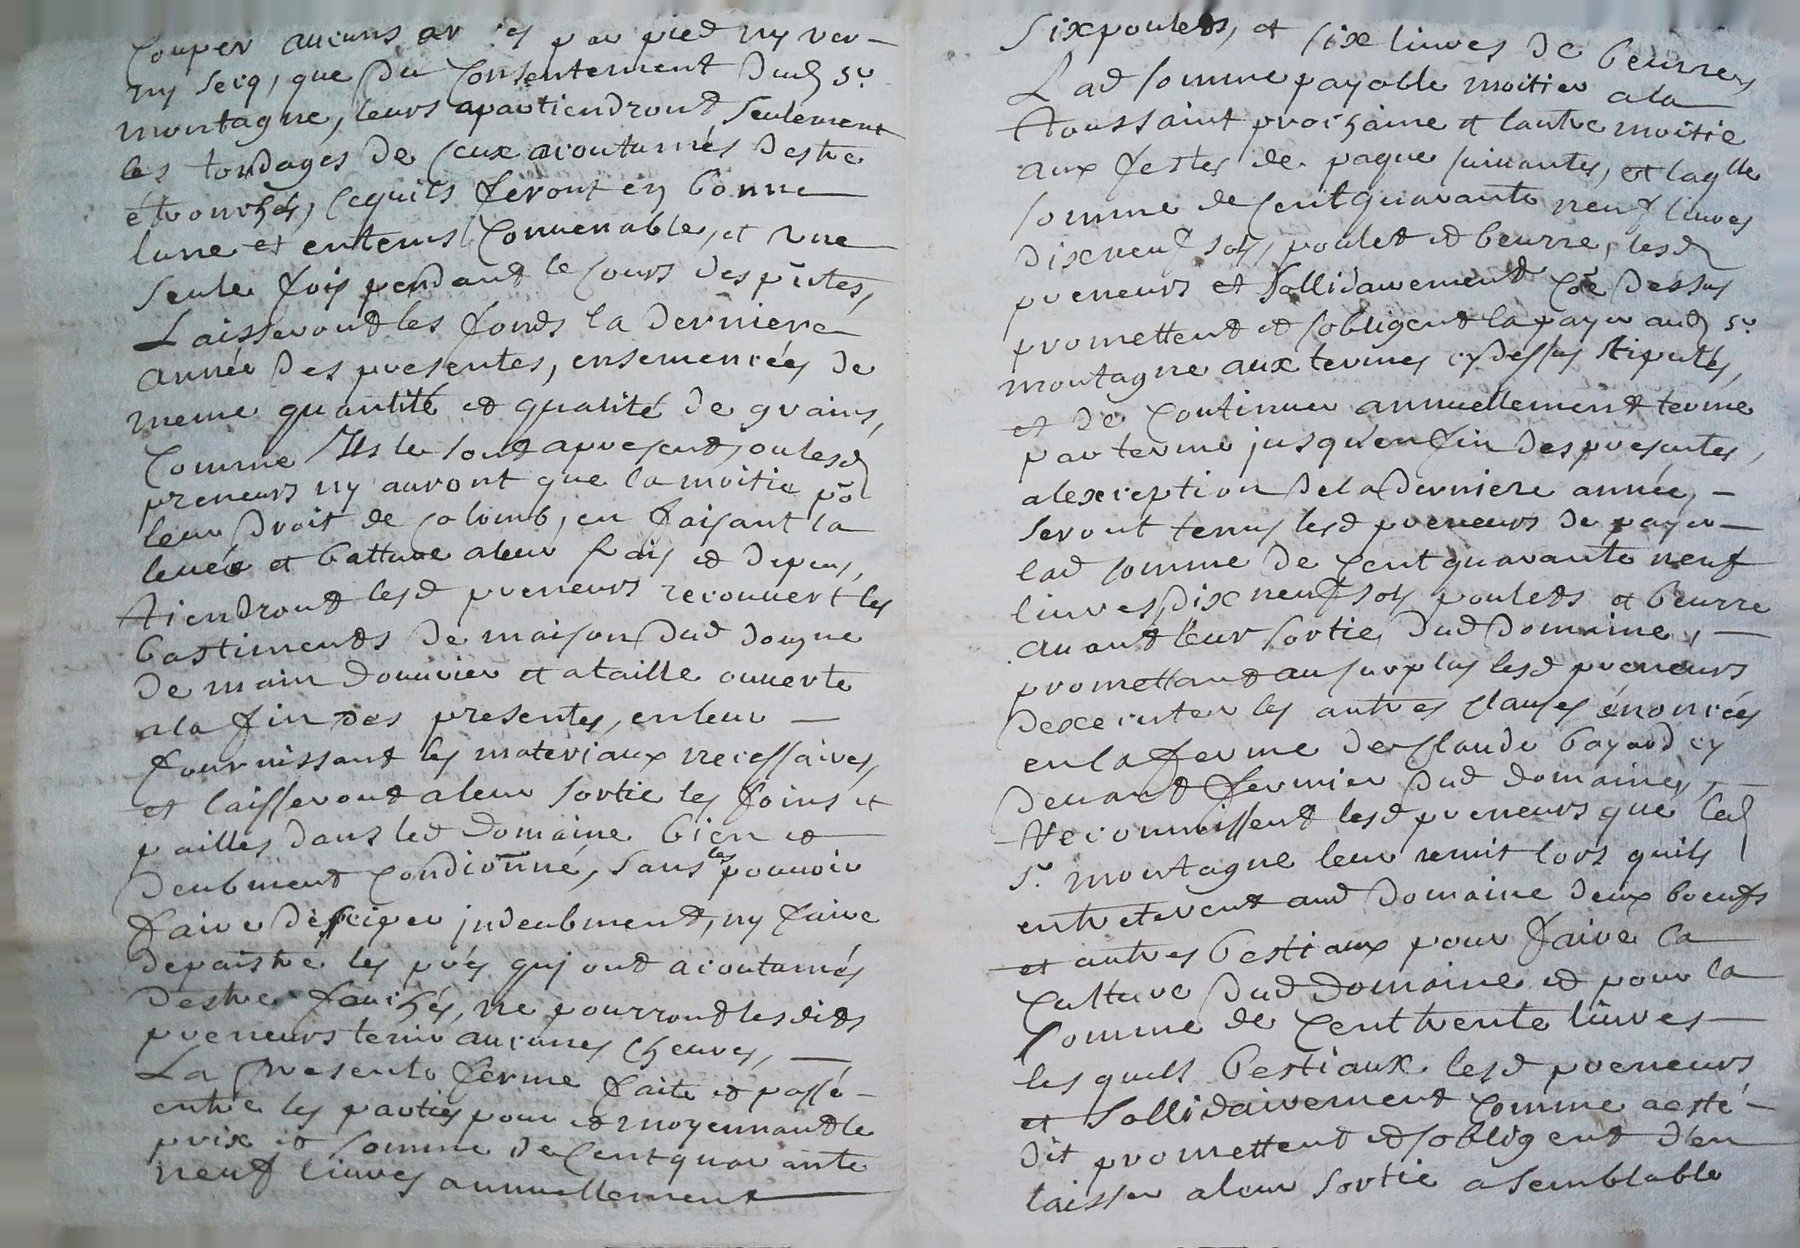 Couper aucuns ar es par pied ny ver-
ny secq, que du Consentement dud sr
montagne, leurs apartiendront seulement
les tondages de ceux acoutumés destre
étronchés, cequils feront en bonne
lune et entems Convenable, et une
seule fois pendant le cours des pñtes,
Laisseront les fonds la derniere
année des presentes, ensemencées de
meme quantité et qualité de grains,
Comme Ils le sont apresent, ou lesd
preneurs ny auront que la moitie po
leur droit de colomb, en faisant la
levée et batture aleur frais et depens,
tiendront lesd preneurs recouvert les
bastiments de maison dud domne
de main douvrier et ataille ouverte
ala fin des presentes, enleur —
fournissant les materiaux necessaires,
et laisseront aleur sortie les foins et
pailles dans led domaine bien et
deubment Condionné, sans les pouvoir
faire dessiper indeubment, ny faire
depaistre les prés qui ont acoutumés
destre fauchés, ne pourront lesdits
preneurs tenir aucunes cheuves, —
La Presente ferme faite et passé-
entre les parties pour et moyennant le
prix et somme de Cent quarante
neuf liuves annuellement
six poulets, et six liuves de beurres
Lad somme payable moitier ala
toussaint prochaine et lautre moitié
aux festes de paque suivantes, et laqlle
somme de Cent quarante neuf liuves
dixneuf sols, poulet et beurre, lesd
preneurs et sollidairement Coe dessus
promettent et sobligent la payer aud sr
montagne aux termes cydessus stipules,
et de Continuer annuellement terme
par terme jusqu'en fin des presentes,
alexception dela derniere année, -
seront tenus lesd preneurs de payer-
lad somme de Cent quarante neuf
liuves, dix neuf sols poulets et beurre
avant leur sortie dud domaine, -
promettant au surplus lesd preneurs
dexecuter les autres clauses énoncées
en la ferme de Claude bayard cy
devant fermier dud domaine, -
Reconnoissent lesd preneurs que led
sr montagne leur remit lors quils
entreterent aud domaine deux boeufs
et autres bestiaux pour faire la
Culture dud domaine et pour la
somme de Cent trente liuves-
les quels bestiaux lesd preneurs
et sollidairement comme aesté-
dit promettent et sobligent den
laisser aleur sortie asemblable